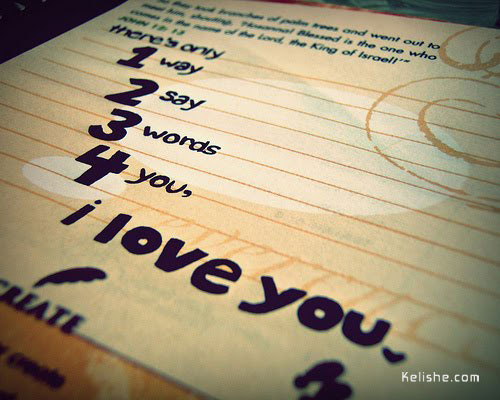 they took branches of palm trees and went out to
meet him, shouting, "Hosanna! Blessed is the one who
comes in the name of the Lord, the King of Israel!'"
there's only
1 way
2 say
3 words
4 you,
i love you.
CREATE
create
Kelishe.com